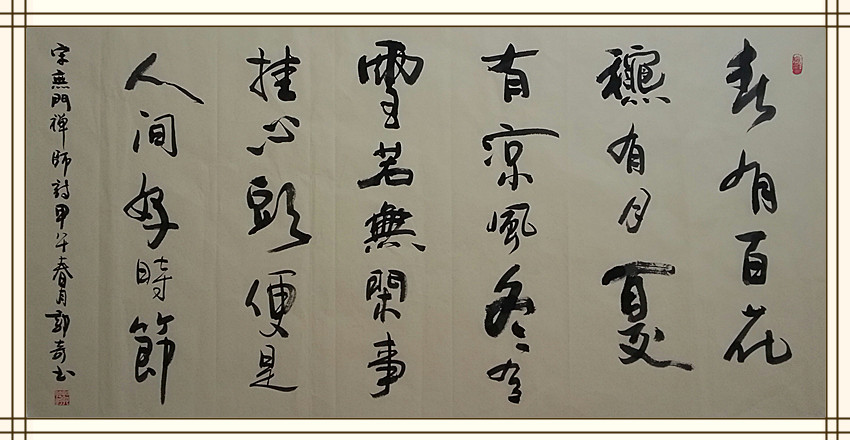 春有百花
穐有月夏
有涼風冬有
雪若無閑事
挂心頭便是
人间好時節
宋無門禅師詩甲午春月郭奇书